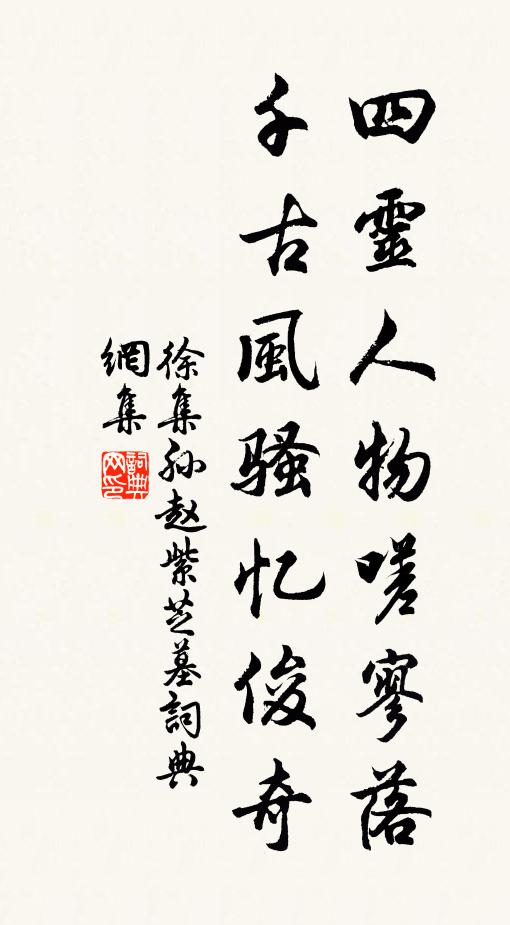 四靈人物嗟寥落
千古風騷忆俊奇
徐集孙赵紫芝墓詞典
網集
詞典网印